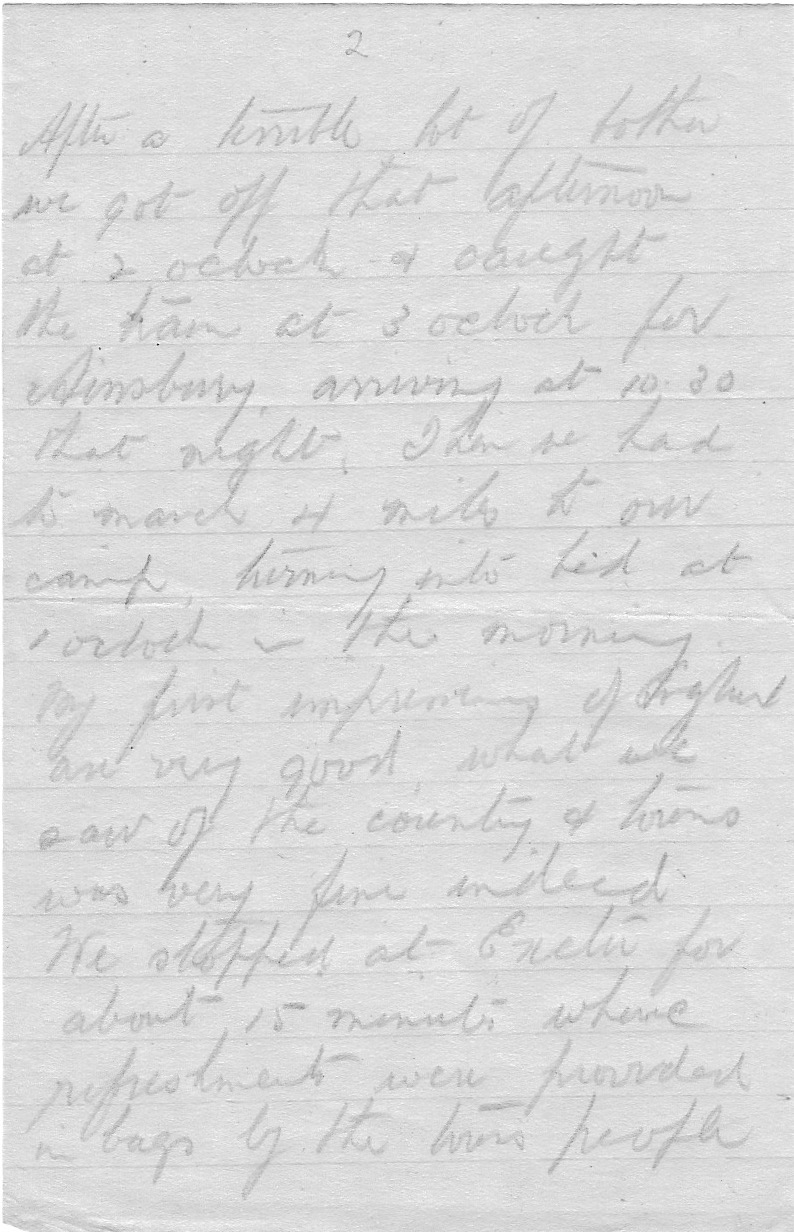 2
After a terrible lot of bother
we got off that afternoon
at 2 oclock & caught
the train at 3 oclock for
arriving at 10.30
that night. Then we had
to march 4 miles to our
camp, turning into bed at
1 oclock in the morning.
My first impressions of
are very good, what we
saw of the country & towns
was very fine indeed.
We stopped at Exeter for
about 15 minutes where
refreshments were provided
in bags by the towns people